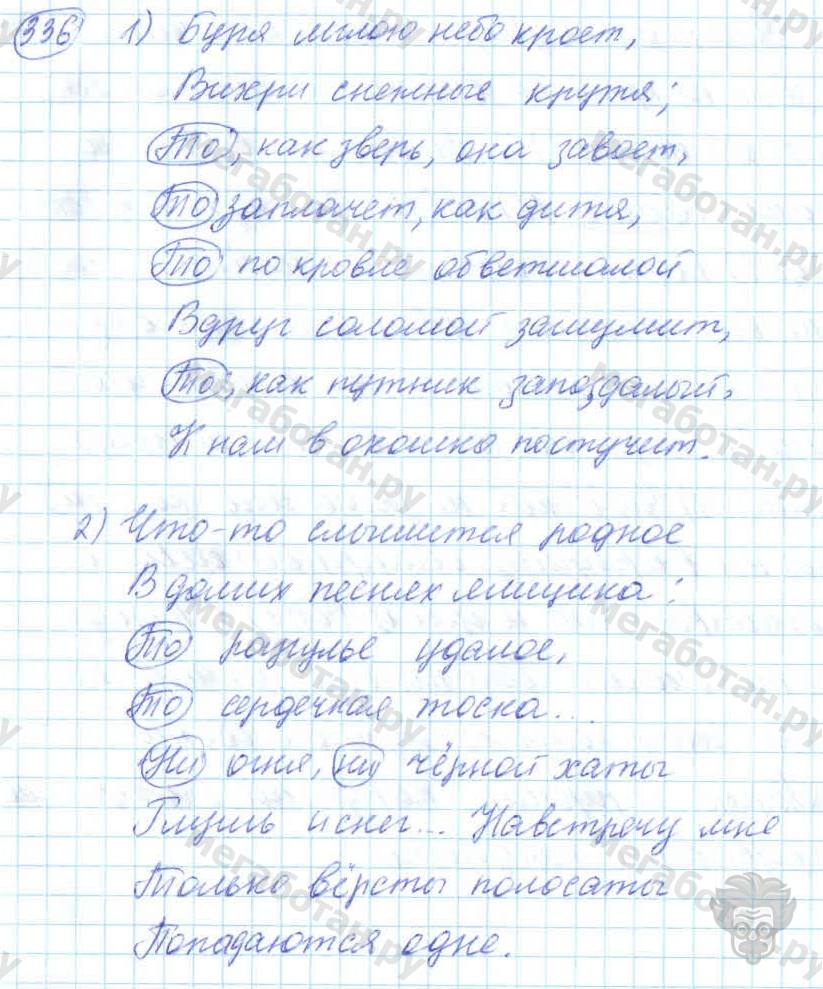 336 1) Буря мглою небо кроет,
Вихри снежные крутя;
То, как зверь, она завоет,
То заплачет, как дитя,
То по кровле обветшалой
Вдруг соломой зашумит,
То, как путник запоздалый,
К нам в окошко постучит.
2) Что-то слышится родное
В долгих песнях ямщика:
То разгулье удалое,
То сердечная тоска...
Ни огня, ни чёрной хаты
Глушь и снег... Навстречу мне
Только вёрсты полосаты
Попадаются одне.
мегаботан.ру